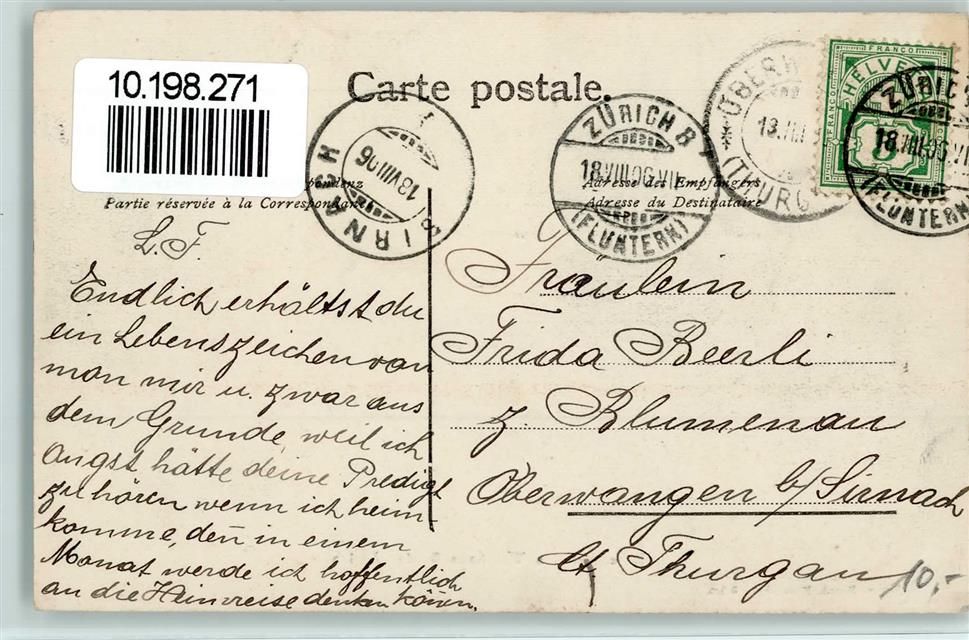 10.198.271
Carte postale.
ZÜRICH 8
18.VIII.06.VII
(FLUNTERN)
SIRNACH
18 VIII 06
OBERW
13.VIII
(THURG
FRANCO
HELVE
FRANCO
5
ZÜRICH
18.VIII.06.VII
(FLUNTERN)
Adresse des Empfängers
Partie réservée à la Correspondance
Adresse du Destinataire
L. F.
Endlich erhältst du
ein Lebenszeichen von
mon mir u. zwar aus
dem Grunde, weil ich
Angst hätte deine Predigt
zu hören wenn ich heim-
komme, den in einem
Monat werde ich hoffentlich
an die Heimreise denken können.
Fräulein
Frida Beerli
z. Blumenau
Oberwangen b/Sirnach
Ct Thurgau
10.-